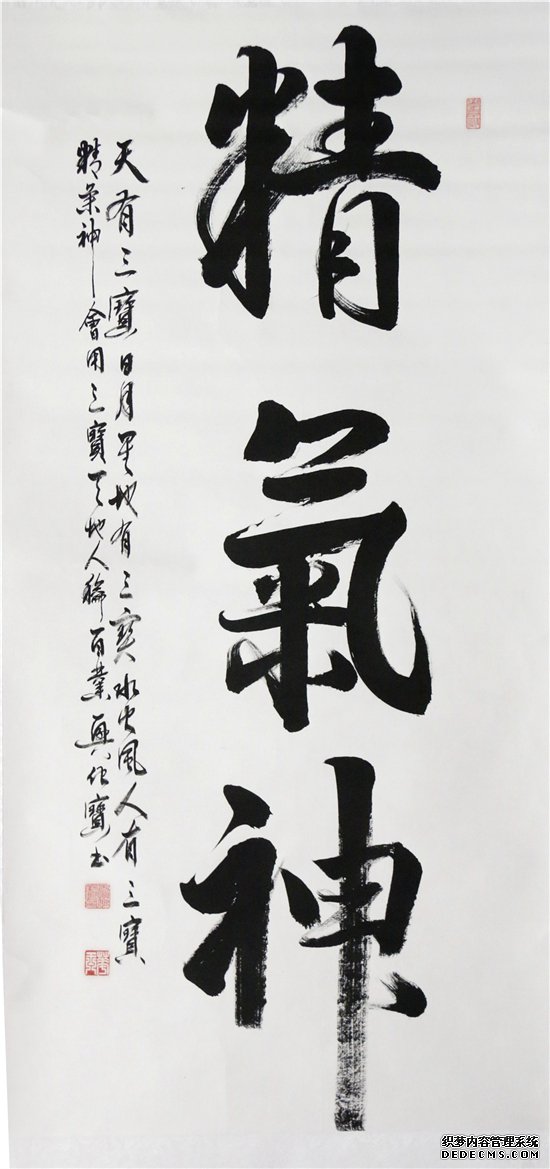 精氣神
天有三寶日月星地有三寶水火風人有三寶
精氣神會用三寶天地人 百業興 寶書
织梦内容管理系统
DEDECMS.COM